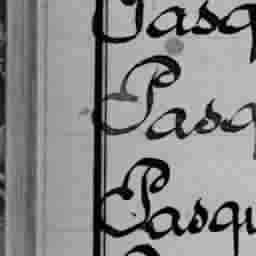 Pasq
Pasq
Pasqu